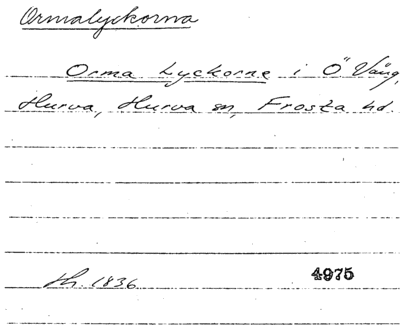 Ormalyckorna
Orma Lyckorne i Ö Vång,
Hurva, Hurva sn, Frosta hd.
Lh. 1836
4975